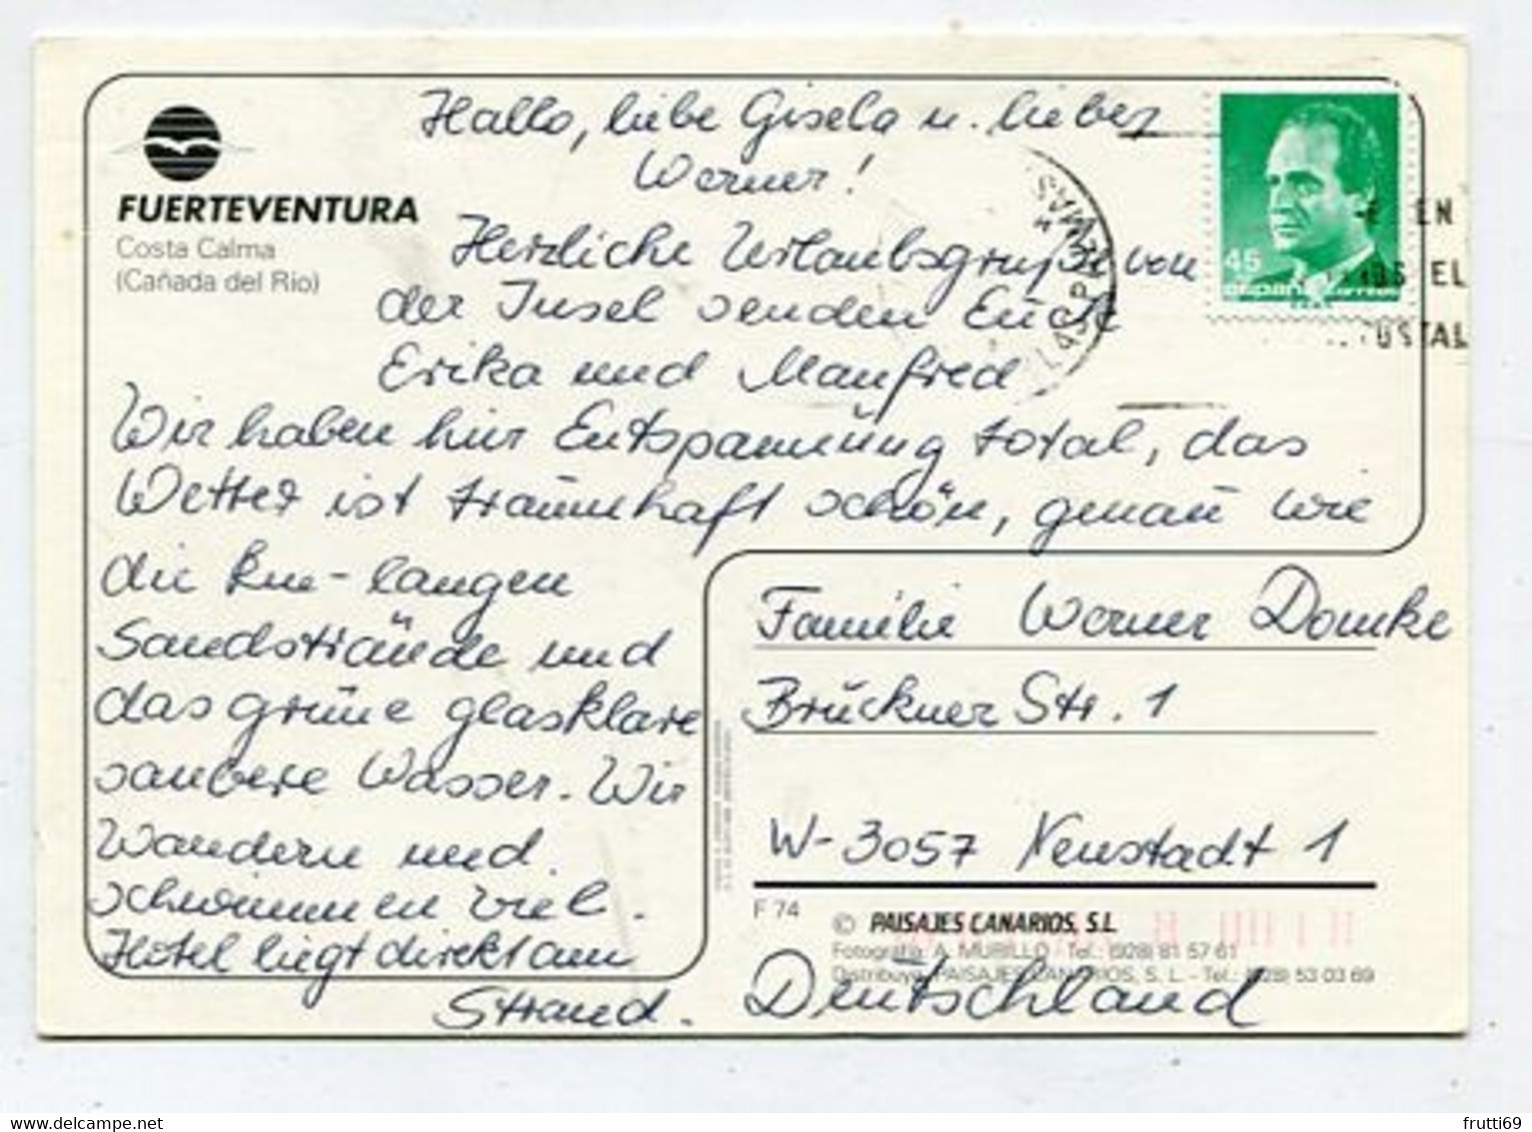 FUERTEVENTURA
Costa Calma
(Cañada del Rio)
Hallo, liebe Gisela u. lieber
Werner!
Herzliche Urlaubsgrüße von
der Insel senden Euch
Erika und Manfred
Wir haben hier Entspannung total, das
Wetter ist traumhaft schön, genau wie
die km-langen
Sandstrände und
das grüne glasklare
saubere Wasser. Wir
Wandern und
schwimmen viel.
Hotel liegt direkt am
Strand.
45
EN
EL
LAS PALMAS
Familie Werner Domke
Brückner Str. 1
W-3057 Neustadt 1
Deutschland
F 74
© PAISAJES CANARIOS, S.L.
Fotografia: A. MURILLO - Tel.: (928) 81 57 61
Distribuye: PAISAJES CANARIOS, S. L. - Tel.: (928) 53 03 69
www.delcampe.net
frutti69